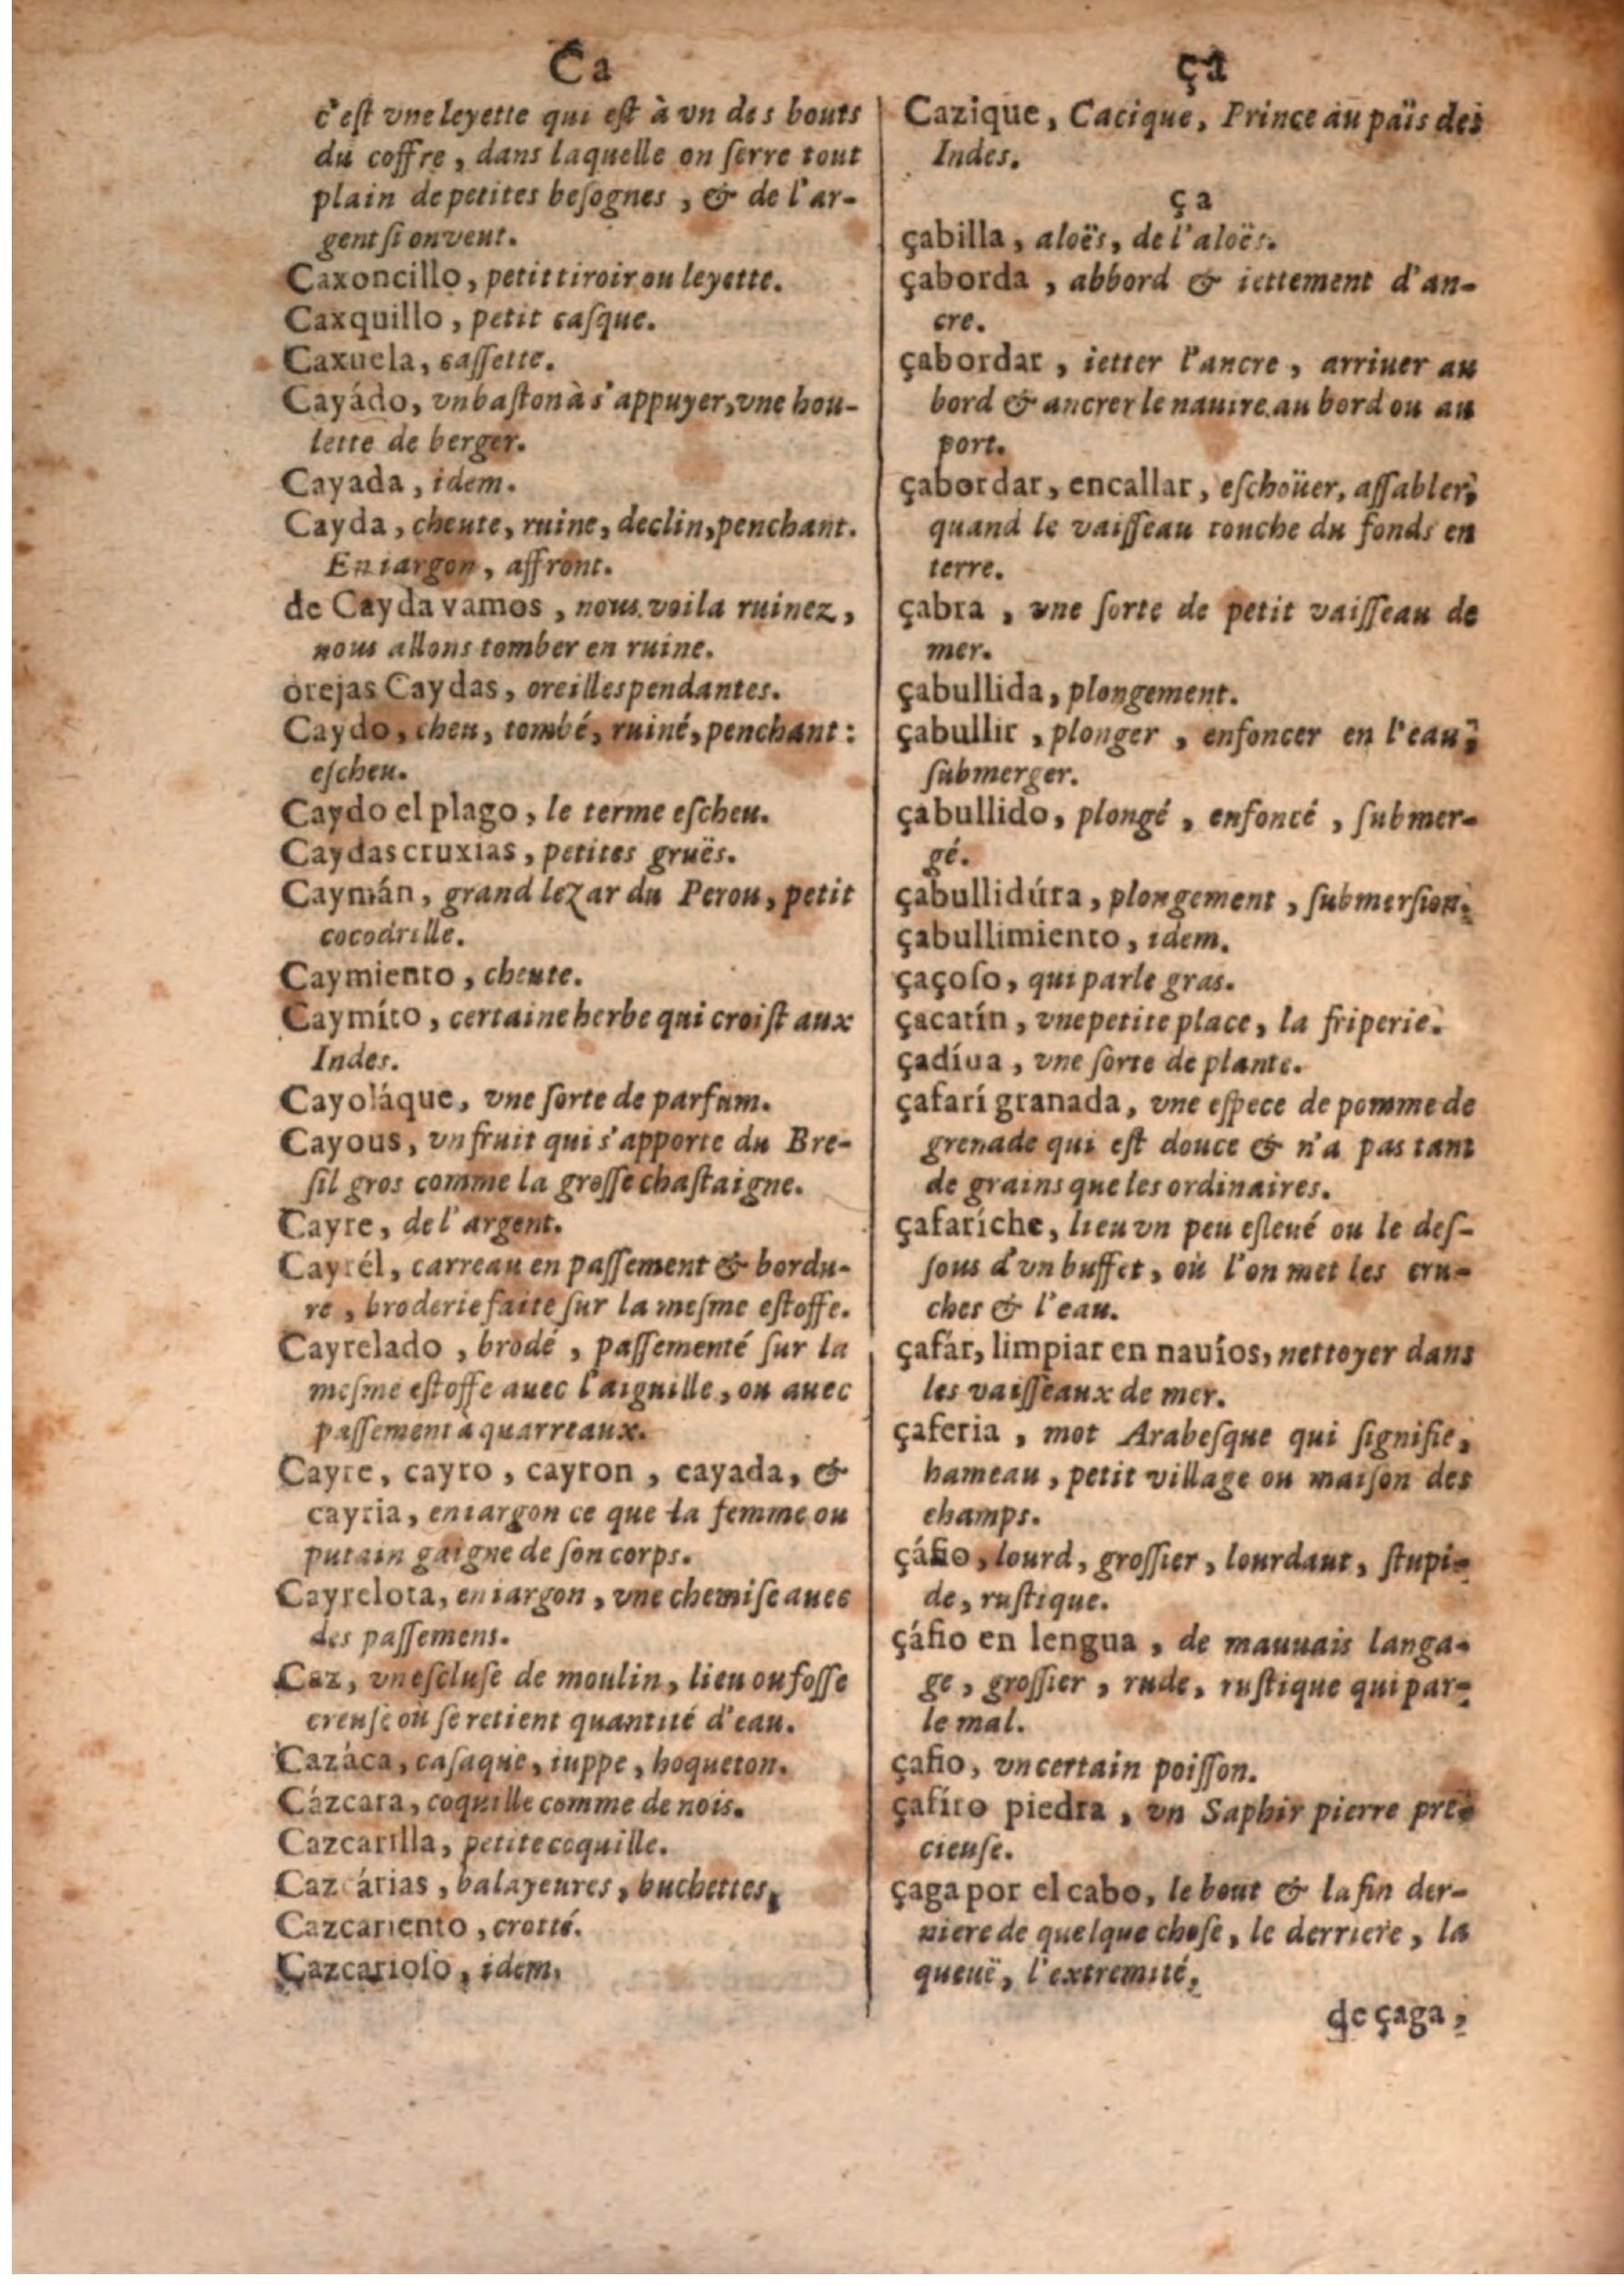 Ca
c'eſt vne leyette qui eſt à vn des bouts
du coffre, dans laquelle on ſerre tout
plain de petites beſognes, & de l'ar-
gent ſi on veut.
Caxoncillo, petit tiroir ou leyette.
Caxquillo, petit caſque.
Caxuela, caſſette.
Cayádo, vn baſton à s'appuyer, vne hou-
lette de berger.
Cayada, idem.
Cayda, cheute, ruine, declin, penchant.
En iargon, affront.
de Cayda vamos, nous voila ruinez,
nous allons tomber en ruine.
orejas Caydas, oreilles pendantes.
Caydo, cheu, tombé, ruiné, penchant:
eſcheu.
Caydo el plago, le terme eſcheu.
Caydas cruxias, petites gruës.
Caymán, grand lezar du Perou, petit
cocodrille.
Caymiento, cheute.
Caymíto, certaine herbe qui croiſt aux
Indes.
Cayoláque, vne ſorte de parfum.
Cayous, vn fruit qui s'apporte du Bre-
ſil gros comme la groſſe chaſtaigne.
Cayre, de l'argent.
Cayrél, carreau en paſſement & bordu-
re, broderie faite ſur la meſme eſtoffe.
Cayrelado, brodé, paſſementé ſur la
meſme eſtoffe auec l'aiguille, ou auec
paſſement à quarreaux.
Cayre, cayro, cayron, cayada, &
cayria, en iargon ce que la femme ou
putain gaigne de ſon corps.
Cayrelota, en iargon, vne chemiſe auec
des paſſemens.
Caz, vne ſcluſe de moulin, lieu ou foſſe
creuſe où ſe retient quantité d'eau.
Cazáca, caſaque, iuppe, hoqueton.
Cázcara, coquille comme de nois.
Cazcarilla, petite coquille.
Cazcárias, balayeures, buchettes,
Cazcariento, crotté.
Cazcarioſo, idem,
ça
Cazique, Cacique, Prince au païs des
Indes.
ça
çabilla, aloës, de l'aloës.
çaborda, abbord & iettement d'an-
cre.
çabordar, ietter l'ancre, arriuer au
bord & ancrer le nauire au bord ou au
port.
çabordar, encallar, eſchoüer, aſſabler,
quand le vaiſſeau touche du fonds en
terre.
çabra, vne ſorte de petit vaiſſeau de
mer.
çabullida, plongement.
çabullir, plonger, enfoncer en l'eau,
ſubmerger.
çabullido, plongé, enfoncé, ſubmer-
gé.
çabullidúra, plongement, ſubmerſion.
çabullimiento, idem.
çaçoſo, qui parle gras.
çacatín, vne petite place, la friperie.
çadíua, vne ſorte de plante.
çafarí granada, vne eſpece de pomme de
grenade qui eſt douce & n'a pas tant
de grains que les ordinaires.
çafaríche, lieu vn peu eſleué ou le deſ-
ſous d'vn buffet, où l'on met les cru-
ches & l'eau.
çafár, limpiar en nauíos, nettoyer dans
les vaiſſeaux de mer.
çaferia, mot Arabeſque qui ſignifie,
hameau, petit village ou maiſon des
champs.
çáfio, lourd, groſſier, lourdaut, ſtupi-
de, ruſtique.
çáfio en lengua, de mauuais langa-
ge, groſſier, rude, ruſtique qui par-
le mal.
çafio, vn certain poiſſon.
çafíro piedra, vn Saphir pierre pre-
cieuſe.
çaga por el cabo, le bout & la fin der-
niere de quelque choſe, le derriere, la
queuë, l'extremité,
de çaga,